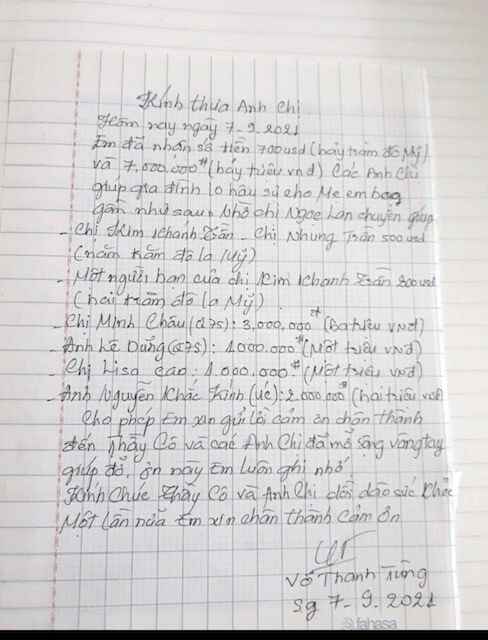 Kính thưa Anh Chị
Hôm nay ngày 7-9-2021
Em đã nhận số tiền 700usd (bảy trăm đô Mỹ)
và 7,000,000đ (bảy triệu vnđ) Các Anh Chị
giúp gia đình lo hậu sự cho Mẹ em bao
gồm như sau: Nhờ chị Ngọc Lan chuyển giúp
- Chị Kim Khanh Trần - Chị Nhung Trần 500usd
(năm trăm đô la Mỹ)
- Một người bạn của chị Kim Khanh Trần 200usd
(hai trăm đô la Mỹ)
- Chị Minh Châu (Q75): 3,000,000đ (Ba triệu vnđ)
- Anh Lê Dũng (Q75): 1.000.000đ (Một triệu vnđ)
- Chị Lisa Cao: 1.000.000đ (Một triệu vnđ)
- Anh Nguyễn Khắc Kính (Úc): 2.000.000đ (hai triệu vnđ)
Cho phép Em xin gửi lời cảm ơn chân thành
đến Thầy Cô và các Anh Chị đã mở rộng vòng tay
giúp đỡ, ơn này Em luôn ghi nhớ.
Kính Chúc Thầy Cô và Anh Chị dồi dào sức khỏe
Một lần nữa Em xin chân thành cảm ơn
Võ Thanh Tùng
Sg 7-9.2021
fahasa